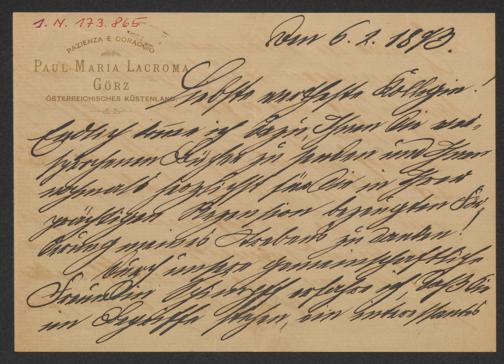 I. N. 173.865
PAZIENZA E CORAGGIO
PAUL MARIA LACROMA
GÖRZ
ÖSTERREICHISCHES KÜSTENLAND
Den 6. 2. 1893.
Liebste verehrte Kollegin!
Endlich komme ich dazu, Ihnen die ver-
sprochenen Bücher zu senden und Ihnen
nochmals herzlichst für die in Ihrer
prächtigen Rezension bezeugten
meines Strebens zu danken!
Durch unsere gemeinschaftliche
Freundin erfahre ich daß Sie
im Begriffe stehen, ein interessantes